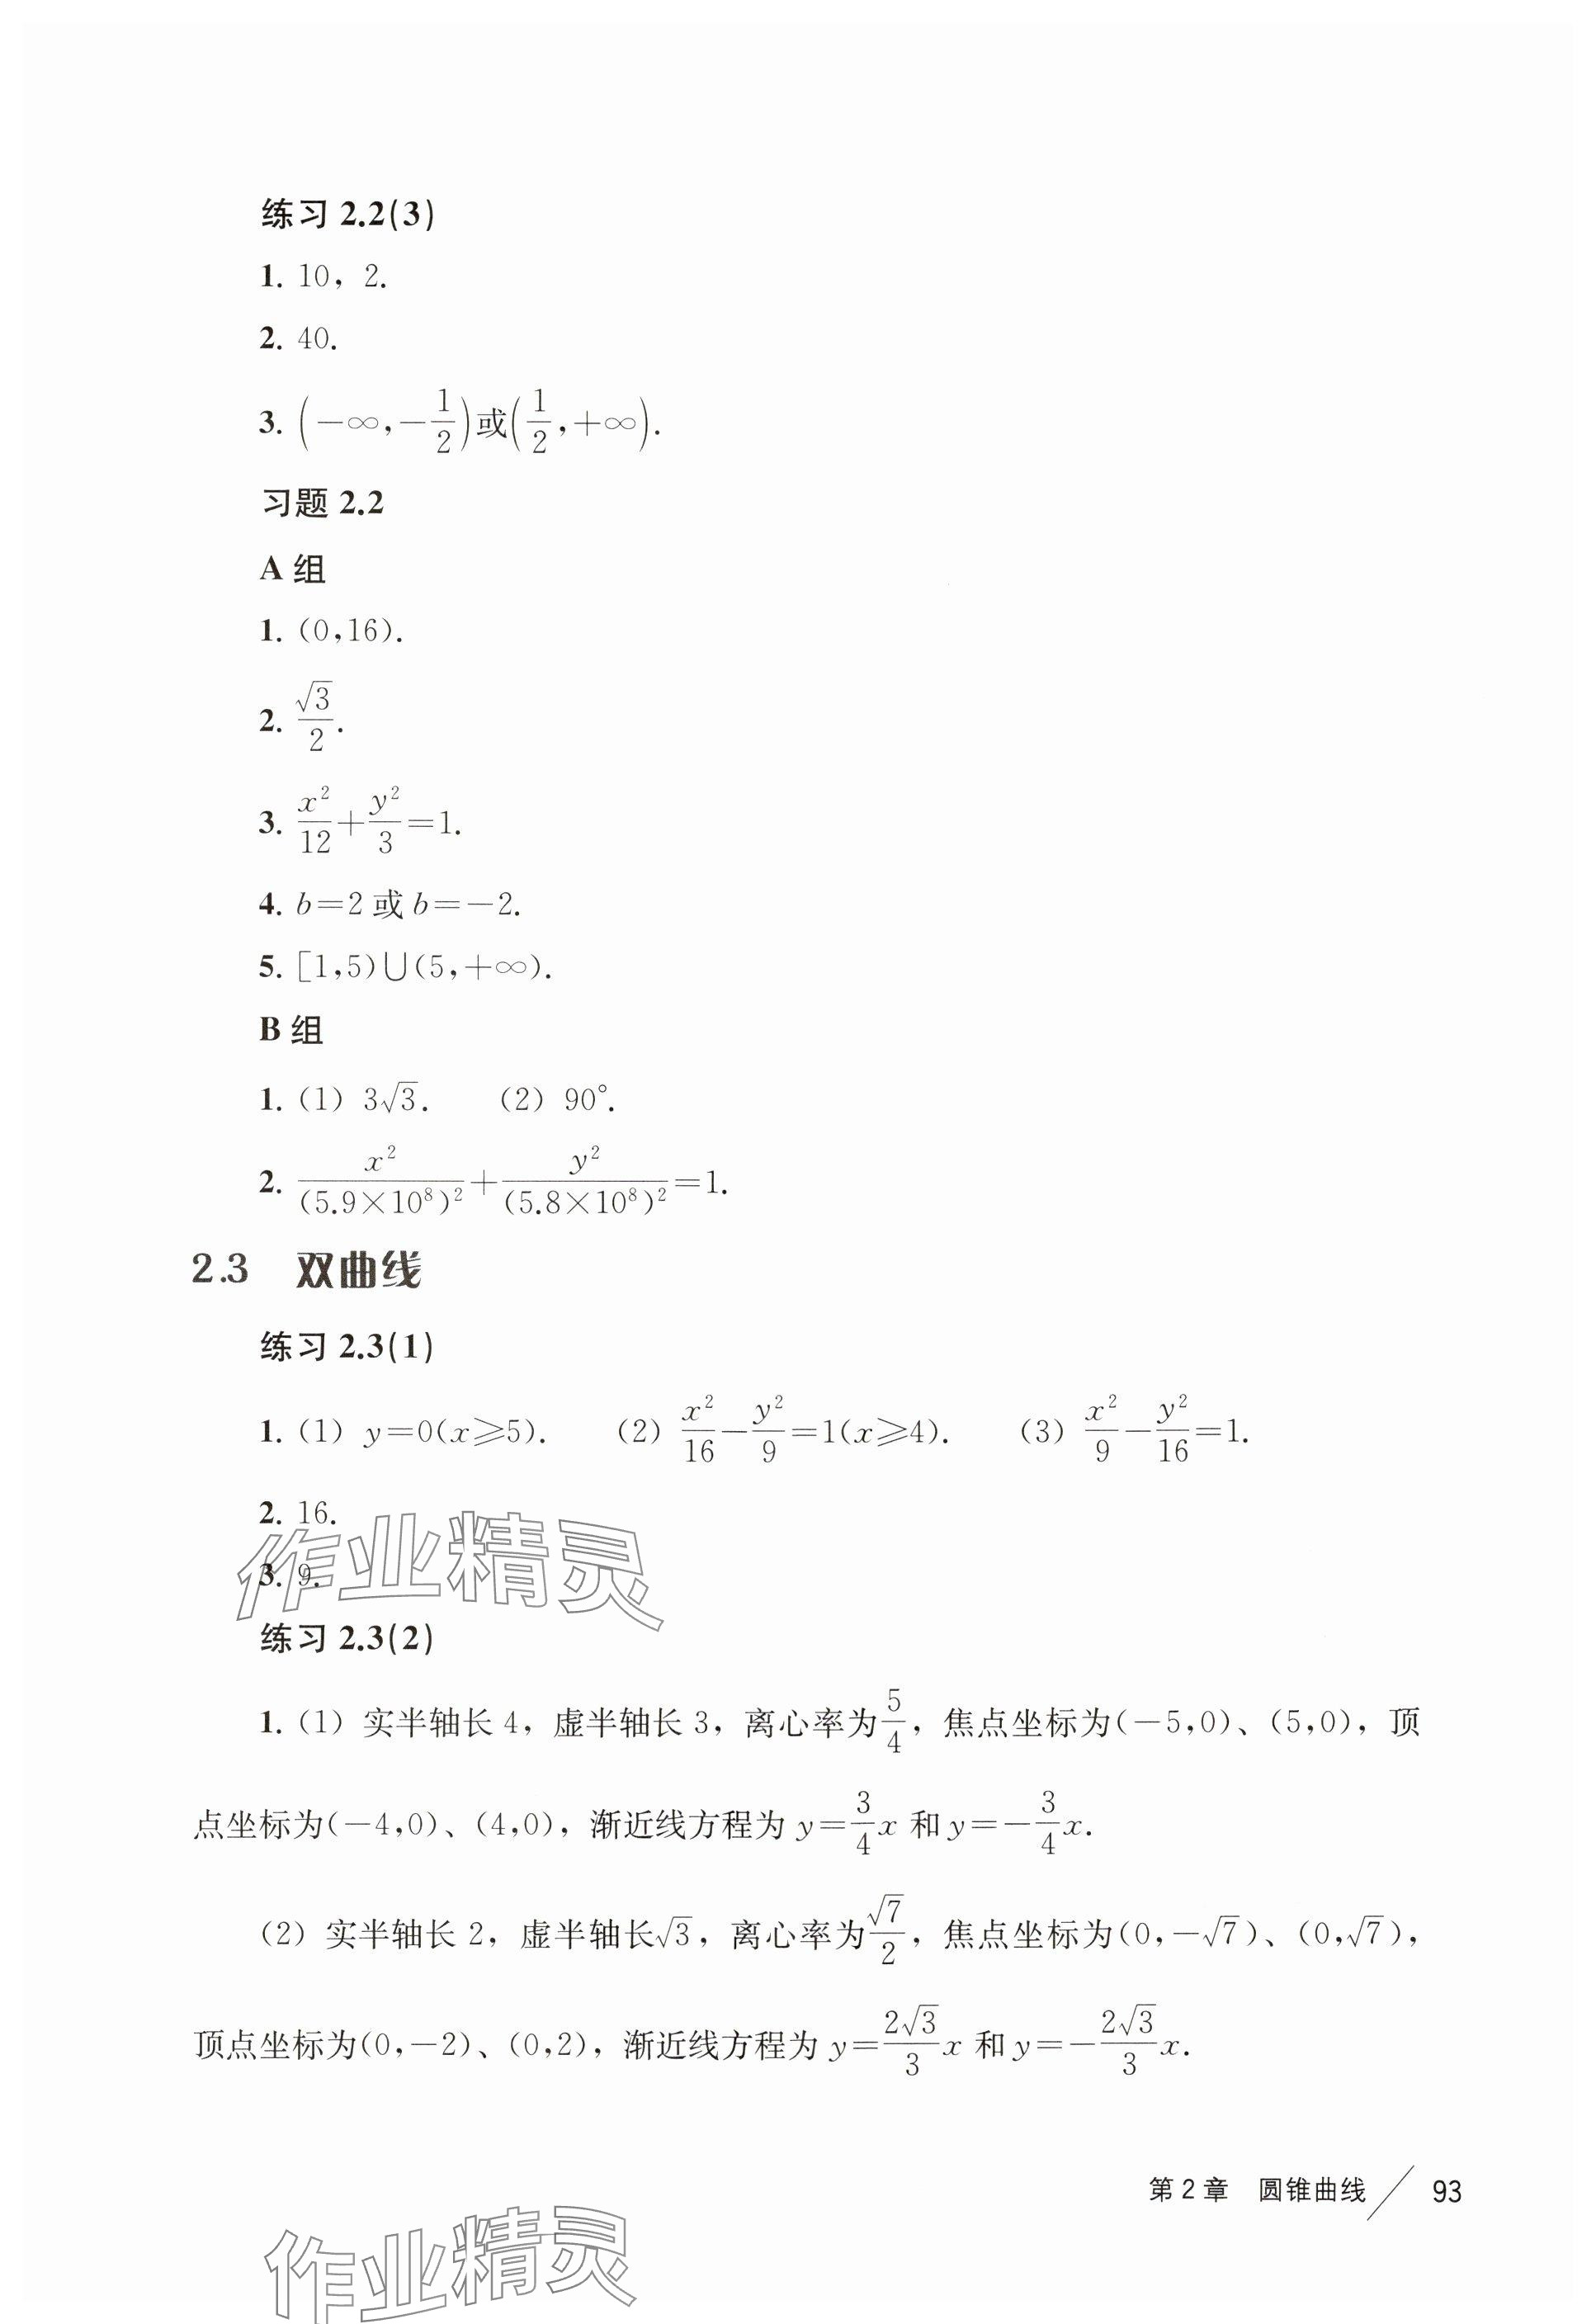 练习 2.2(3)
1. 10，2.
2. 40.
3. (−∞,−1/2)或(1/2,+∞).
习题 2.2
A 组
1. (0,16).
2. √3/2.
3. x²/12+y²/3=1.
4. b=2 或 b=−2.
5. [1,5)∪(5,+∞).
B 组
1. (1) 3√3. (2) 90°.
2. x²/(5.9×10⁸)²+y²/(5.8×10⁸)²=1.
2.3 双曲线
练习 2.3(1)
1. (1) y=0(x⩾5). (2) x²/16−y²/9=1(x⩾4). (3) x²/9−y²/16=1.
2. 16.
3. 9.
作业精灵
练习 2.3(2)
1. (1) 实半轴长 4，虚半轴长 3，离心率为5/4，焦点坐标为(−5,0)、(5,0)，顶
点坐标为(−4,0)、(4,0)，渐近线方程为 y=3/4x 和 y=−3/4x.
(2) 实半轴长 2，虚半轴长√3，离心率为√7/2，焦点坐标为(0,−√7)、(0,√7)，
顶点坐标为(0,−2)、(0,2)，渐近线方程为 y=2√3/3x 和 y=−2√3/3x.
第 2 章 圆锥曲线 93
作业精灵